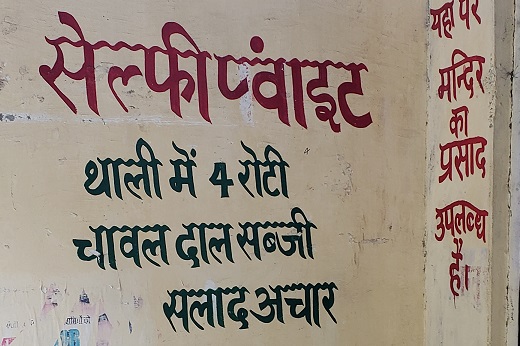 सेल्फी पंवाइट
थाली में 4 रोटी
चावल दाल सब्जी
सलाद अचार
यहाँ पर
मन्दिर
का
प्रसाद
उपलब्ध
है।